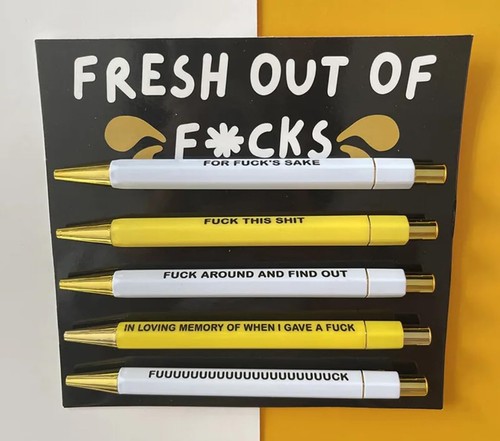 FRESH OUT OF
F*CKS
FOR FUCK'S SAKE
FUCK THIS SHIT
FUCK AROUND AND FIND OUT
IN LOVING MEMORY OF WHEN I GAVE A FUCK
FUUUUUUUUUUUUUUUUUUUUCK